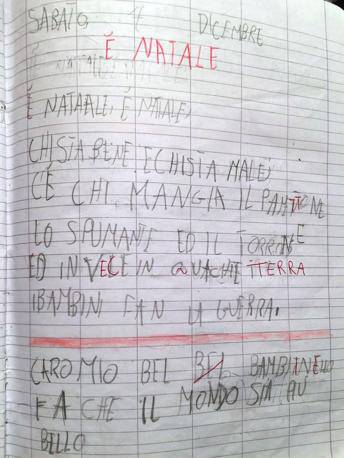 SABATO DICEMBRE
È NATALE
È NATAALE, È NATALE,
CHISTA BENE ECHISTA MALE,
CÈ CHI MANGIA IL PANTTONE
LO SPUMANTE ED IL TORRONE
ED INVECE IN QUACHE TTERRA
IBAMBINI FAN LA GUERRA.
CARO MIO BEL BEL BAMBINELLO
FA CHE IL MONDO SIA
BELLO